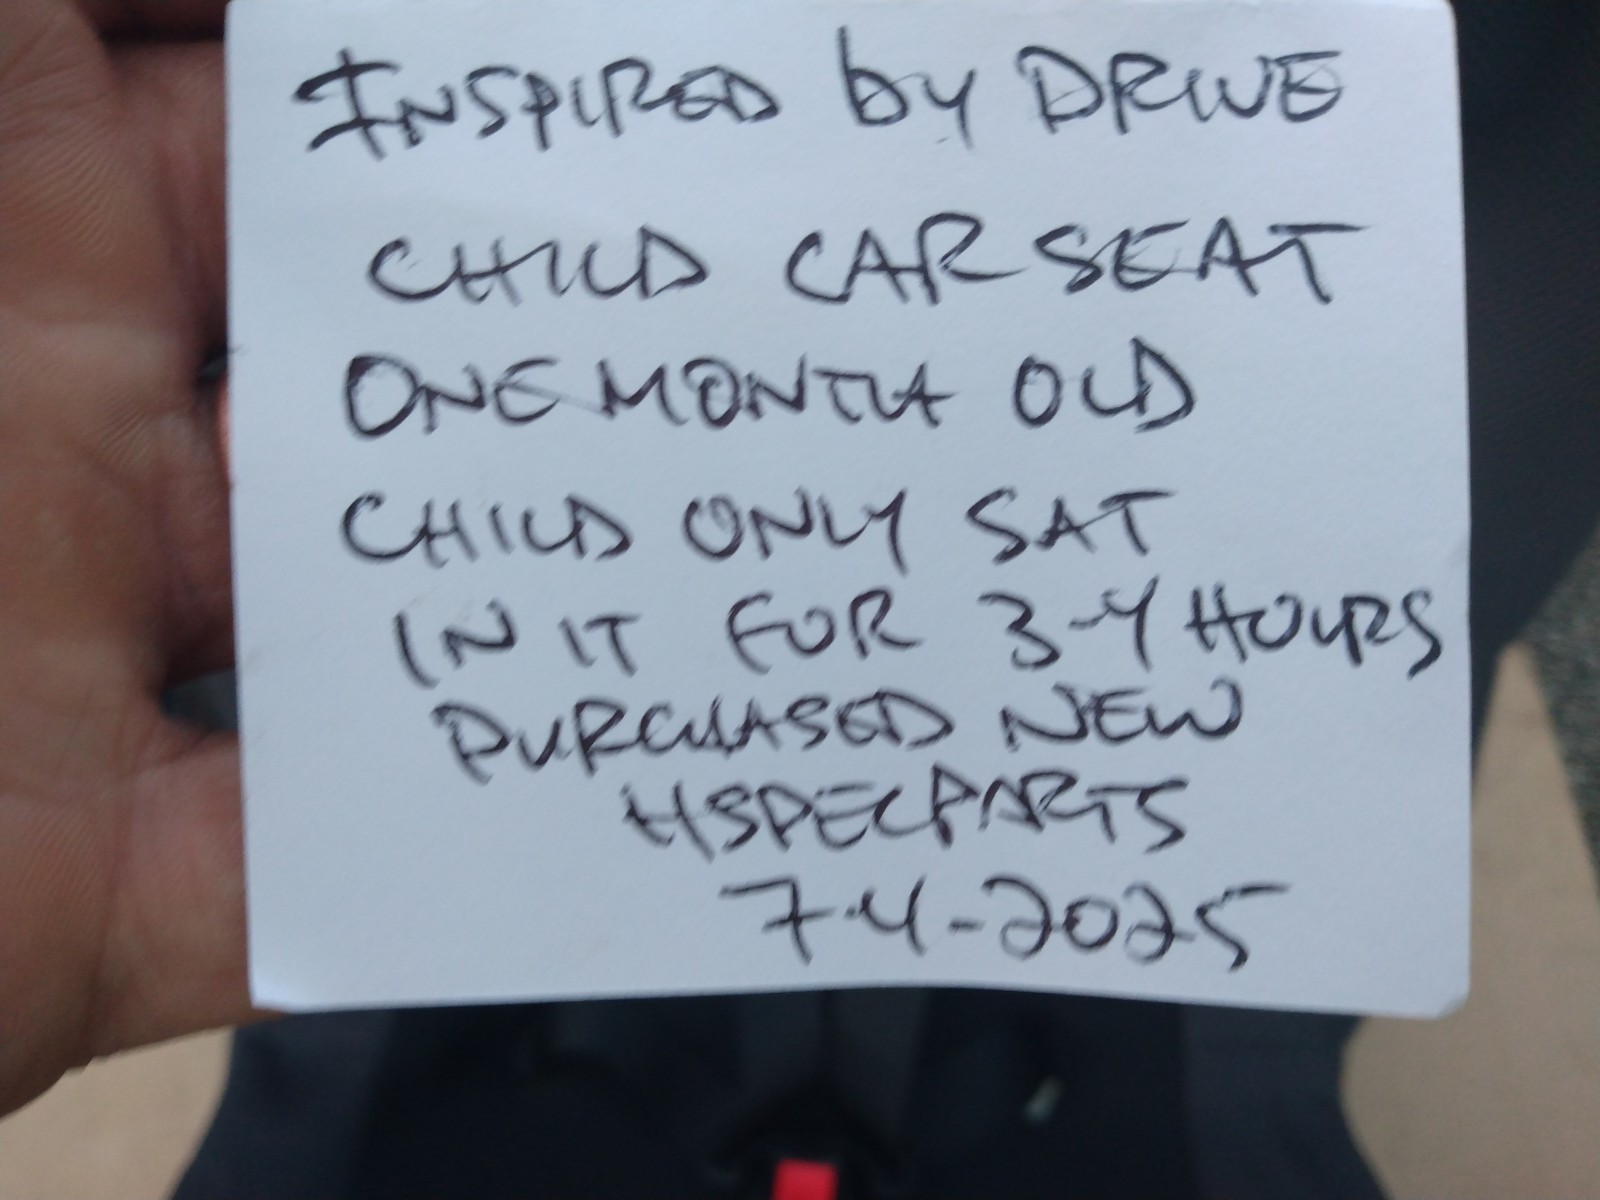 INSPIRED by DRIVE
CHILD CAR SEAT
ONE MONTH OLD
CHILD ONLY SAT
IN IT FOR 3-4 HOURS
PURCHASED NEW
HSPECPARTS
7-4-2025